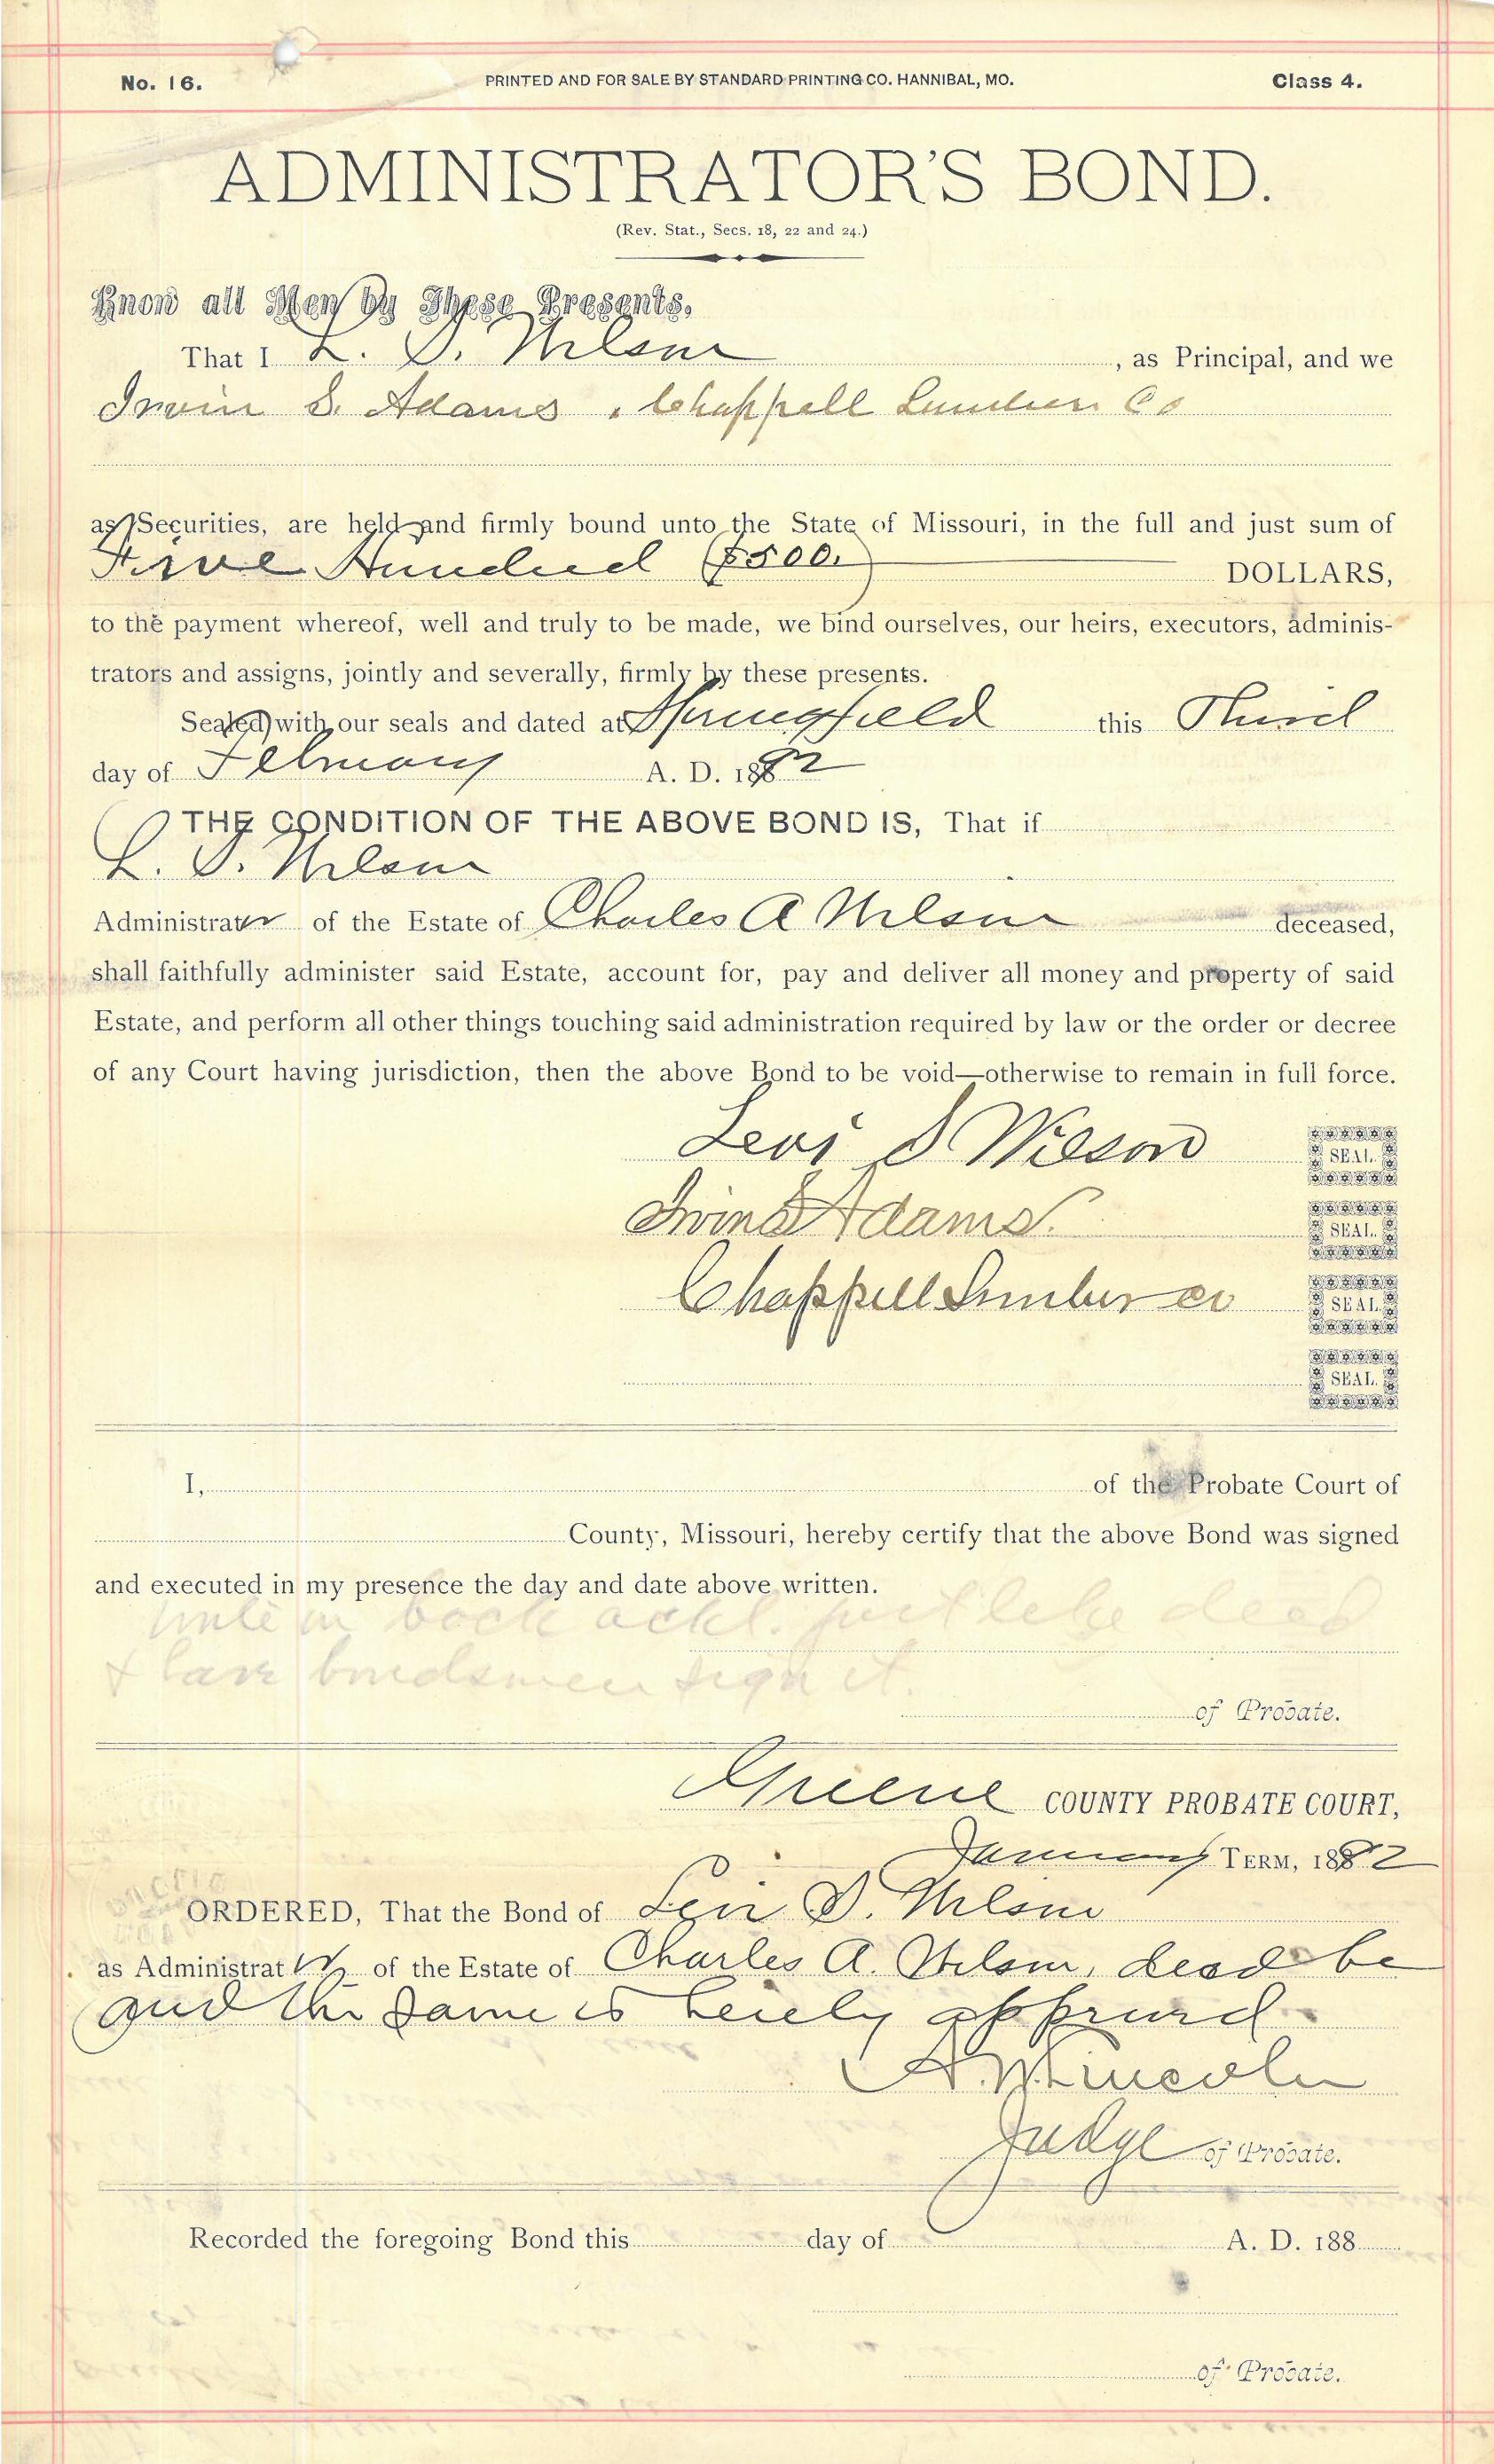 No. 16.
PRINTED AND FOR SALE BY STANDARD PRINTING CO. HANNIBAL, MO.
Class 4.
ADMINISTRATOR'S BOND.
(Rev. Stat., Secs. 18, 22 and 24.)
Know all Men by These Presents,
That I L. S. Wilson , as Principal, and we
Irvin S. Adams , Chappell Lumber Co
as Securities, are held and firmly bound unto the State of Missouri, in the full and just sum of
Five Hundred ($500.) DOLLARS,
to the payment whereof, well and truly to be made, we bind ourselves, our heirs, executors, adminis-
trators and assigns, jointly and severally, firmly by these presents.
Sealed with our seals and dated at Springfield this Third
day of February A. D. 1892
THE CONDITION OF THE ABOVE BOND IS, That if
L. S. Wilson
Administrator of the Estate of Charles A Wilson deceased,
shall faithfully administer said Estate, account for, pay and deliver all money and property of said
Estate, and perform all other things touching said administration required by law or the order or decree
of any Court having jurisdiction, then the above Bond to be void—otherwise to remain in full force.
Levi S Wilson SEAL.
Irvin S Adams. SEAL.
Chappell Lumber co SEAL
SEAL.
I, of the Probate Court of
County, Missouri, hereby certify that the above Bond was signed
and executed in my presence the day and date above written.
write on back ackl. just like deed
& have bondsmen sign it.
of Probate.
Greene COUNTY PROBATE COURT,
January TERM, 1892
ORDERED, That the Bond of Levi S. Wilson
as Administrator of the Estate of Charles A. Wilson, decd be
and the same is hereby approved.
A. W. Lincoln
Judge of Probate.
Recorded the foregoing Bond this day of A. D. 188
of Probate.